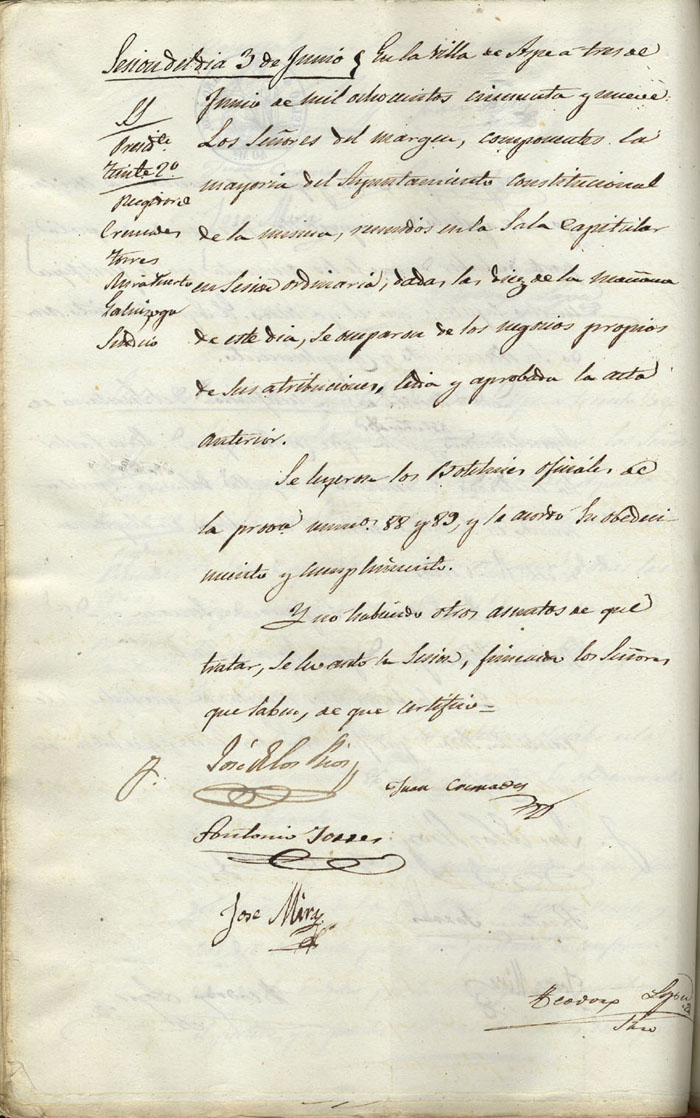 Sesion del dia 3 de Junio
En la Villa de Aspe a tres de
Junio de mil ochocientos cincuenta y nueve
Los Señores del margen, componentes la
mayoria del Ayuntamiento constitucional
de la misma, reunidos en la Sala Capitular
en Sesion ordinaria, dadas las diez de la mañana
de este dia, se ocuparon de los negocios propios
de sus atribuciones, leida y aprobada la acta
anterior.
SS
Presidte
Tnte 2º
Regidores
Cremades
Torres
Mira Huerto
Galinzoga
Sindico
Se leyeron los Boletines oficiales de
la prova numos 88 y 89, y se acordó su obedeci
miento y cumplimiento.
Y no habiendo otros asuntos de que
tratar, se levantó la Sesion, firmando los Señores
que saben, de que certifico=
José de los Rios
Juan Cremades
Antonio Torres
Jose Mira
Teodoro Lopez
Srio